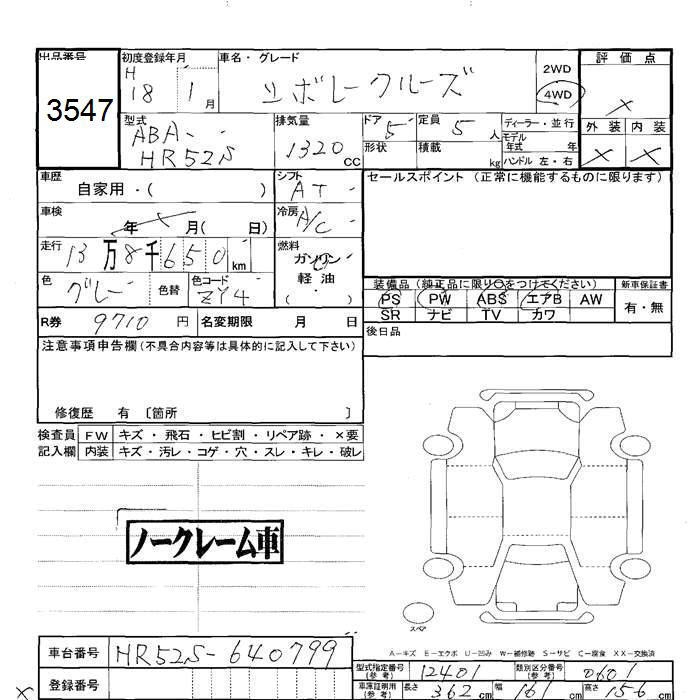 出品番号 初度登録年月 車名・グレード 2WD 評価点
H
3547 18 1月 シボレークルーズ 4WD ×
型式 排気量 ドア 5 定員 5人 ディーラー・並行 外装 内装
ABA- 1320CC 形状 積載 kg モデル年式 年 × ×
HR52S ハンドル 左・右
車歴 自家用・( ) シフト AT セールスポイント (正常に機能するものに限ります)
車検 年 月( 日) 冷房 A/C
走行 13万8千650km 燃料 ガソリン
軽油
( ・ )
色 グレー 色替 色コード ZY4
装備品 (純正品に限り○をつけてください) 新車保証書
PS PW ABS エアB AW 有・無
SR ナビ TV カワ
R券 9710円 名変期限 月 日 後日品
注意事項申告欄(不具合内容等は具体的に記入して下さい)
修復歴 有 〔箇所 〕
検査員 FW キズ・飛石・ヒビ割・リペア跡・×要
記入欄 内装 キズ・汚レ・コゲ・穴・スレ・キレ・破レ
ノークレーム車
スペア
A―キズ E―エクボ U―凹み W―補修跡 S―サビ C―腐食 XX―交換済
車台番号 HR52S-640799
型式指定番号(参考) 12401 類別区分番号(参考) 0601
× 登録番号
車庫証明用(参考) 長さ 362cm 幅 161cm 高さ 156cm